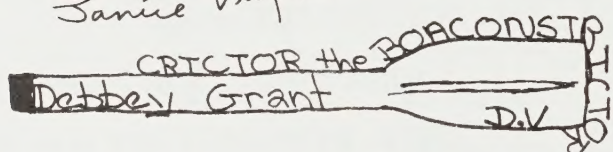 Janice
CRICTOR the BOACONSTRICTOR
Debbey Grant
D.V